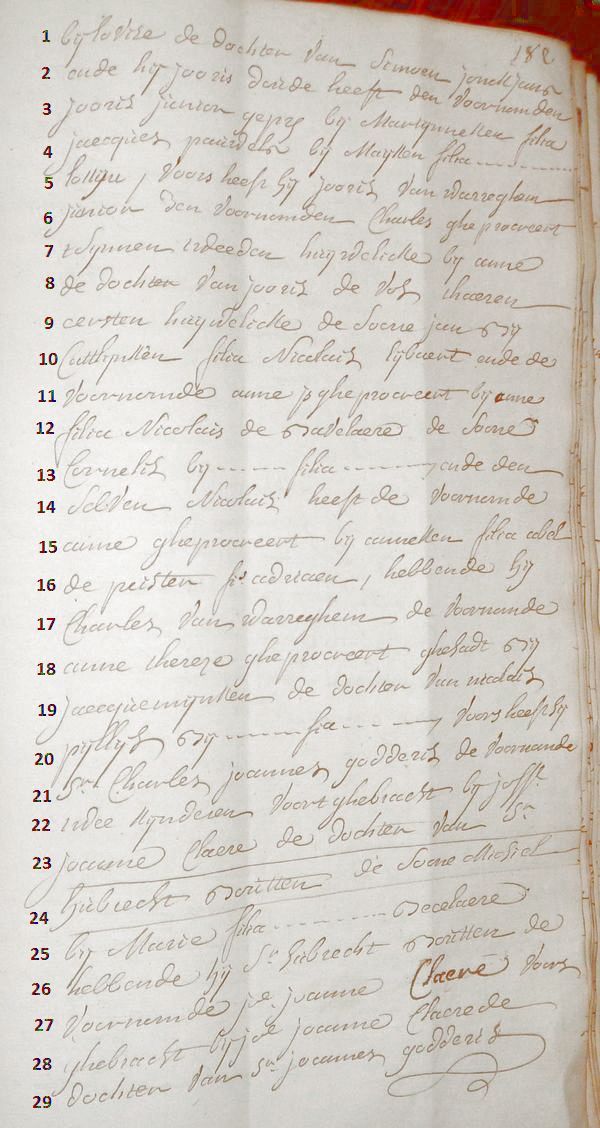 182
1 bij lovise de dochter van Simoen jonckjans
2 ende hij jooris Oude heeft den Voornomden
3 jooris junior gepro bij Martynneken filia
4 jaecques pauwels bij Mayken filia ---------
5 Voors heeft hij jooris Van Warreghem
6 junior den Voornomden Charles gheprocreert
7 tsynnen tweeden huywelicke bij anne
8 de dochter Van jooris de Vos thaeren
9 eersten huijwelicke de Soone jan bij
10 Cathlynken filia Nicolais lybaert ende de
11 Voornomde anne is gheprocreert bij anne
12 filia Nicolais de bavelaere de Soone
13 Cornelis bij ----- filia ------- ende den
14 Selven Nicolais heeft de Voornomde
15 anne gheprocreert bij anneken filia abel
16 de fs adriaen, hebbende hij
17 Charles Van Warreghem de Voornomde
18 anne thereze gheprocreert ghehadt bij
19 jacquemijnken de dochter Van nicolais
20 bij ------- fia ------- Voors heeft hij
21 Sr. Charles joannes godderis de Voornomde
22 twee Kynderen Voort ghebracht bij joffe
23 joanne Claere de dochter Van Sr
24 hubrecht de Soone Michiel
25 bij Marie filia --------- becelaere
26 hebbende hij Sr hubrecht de
27 Voornomde joe joanne Claere Voors
28 ghebracht bij joe joanne Claere de
29 dochter Van Sr joannes godderis